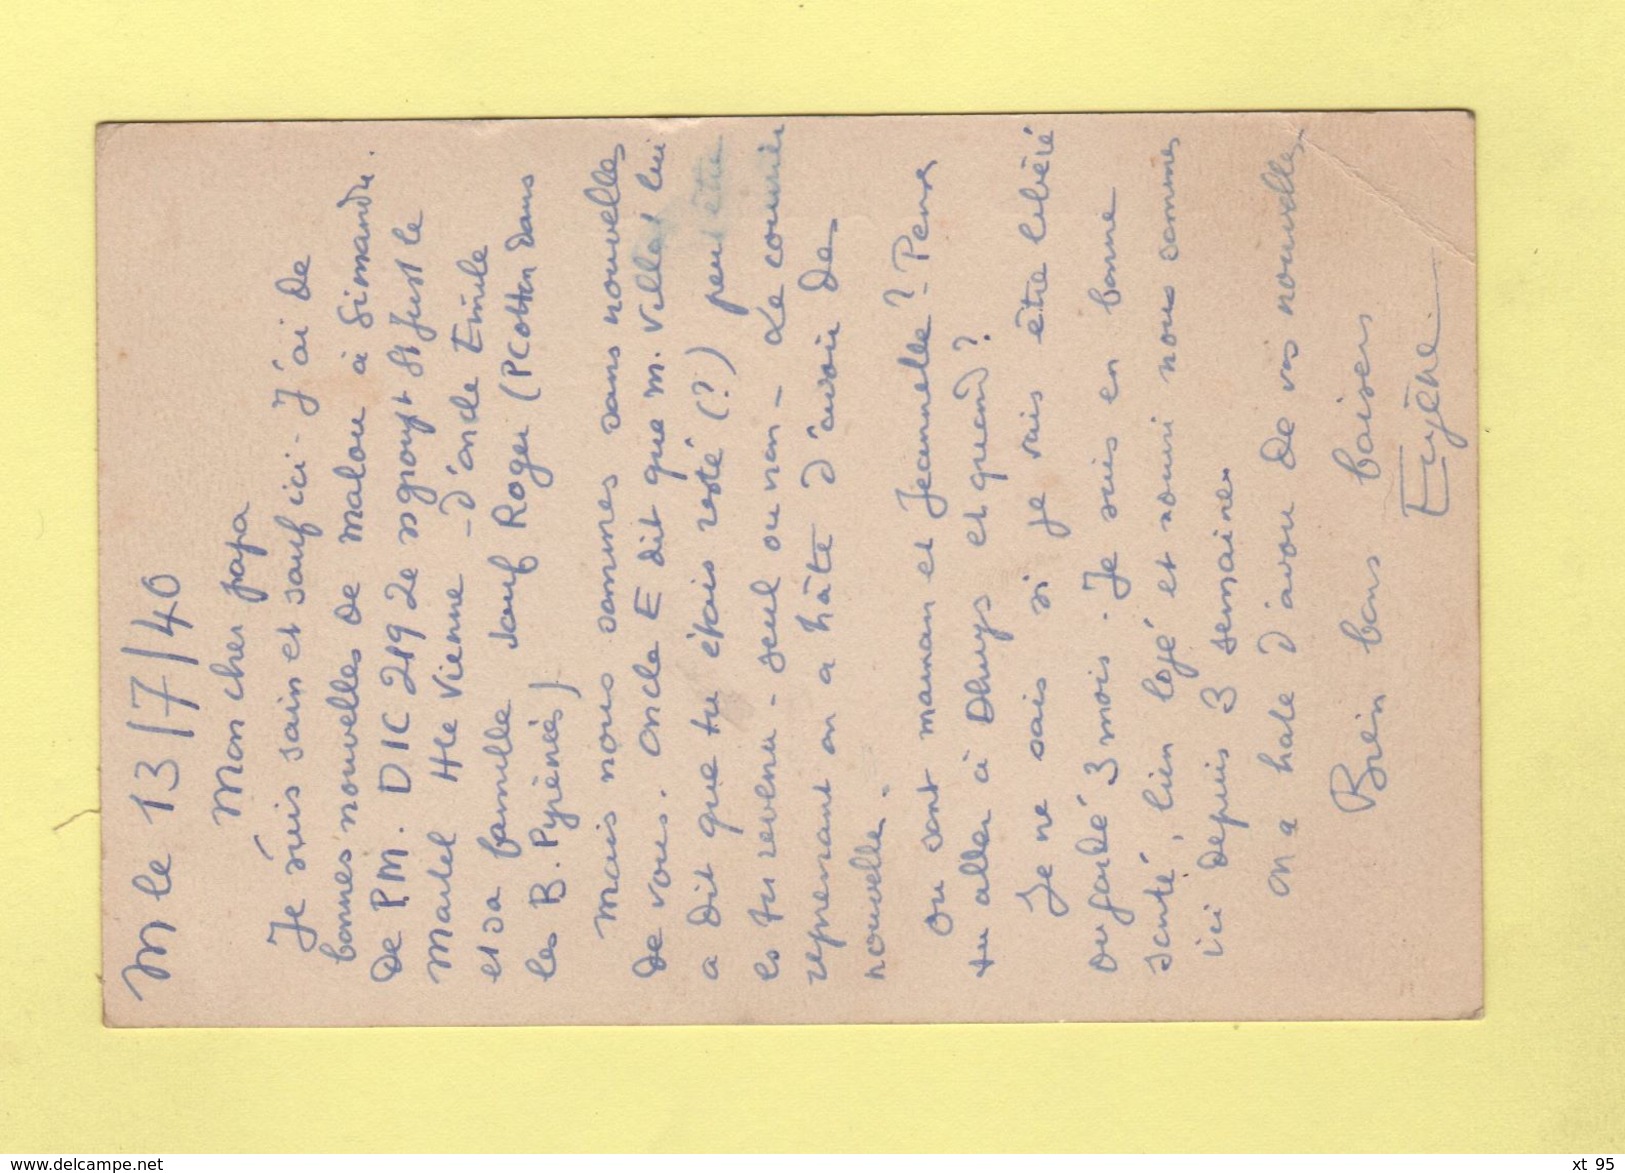 M le 13/7/40
Mon cher papa
Je suis sain et sauf ici - J'ai de
bonnes nouvelles de Malou à Simandre.
De P.M. DIC 219 2e groupt St Just le
Martel Hte Vienne - d'oncle Emile
et sa famille sauf Roger (P Cotten dans
les B. Pyrénées)
Mais nous sommes sans nouvelles
de vous. Oncle E dit que M. Villat lui
a dit que tu étais resté (?) peut être
es tu revenu - seul ou non - Le courrier
reprenant on a hâte d'avoir des
nouvelles.
Ou sont maman et Jeannelle ? Penses
tu aller à Dhuys et quand ?
Je ne sais si je vais être libéré
ou gardé 3 mois. Je suis en bonne
santé, bien logé et nourri nous sommes
ici depuis 3 semaines
On a hate d'avoir de vos nouvelles
Bien bons baisers
Eugène.
www.delcampe.net
xt 95